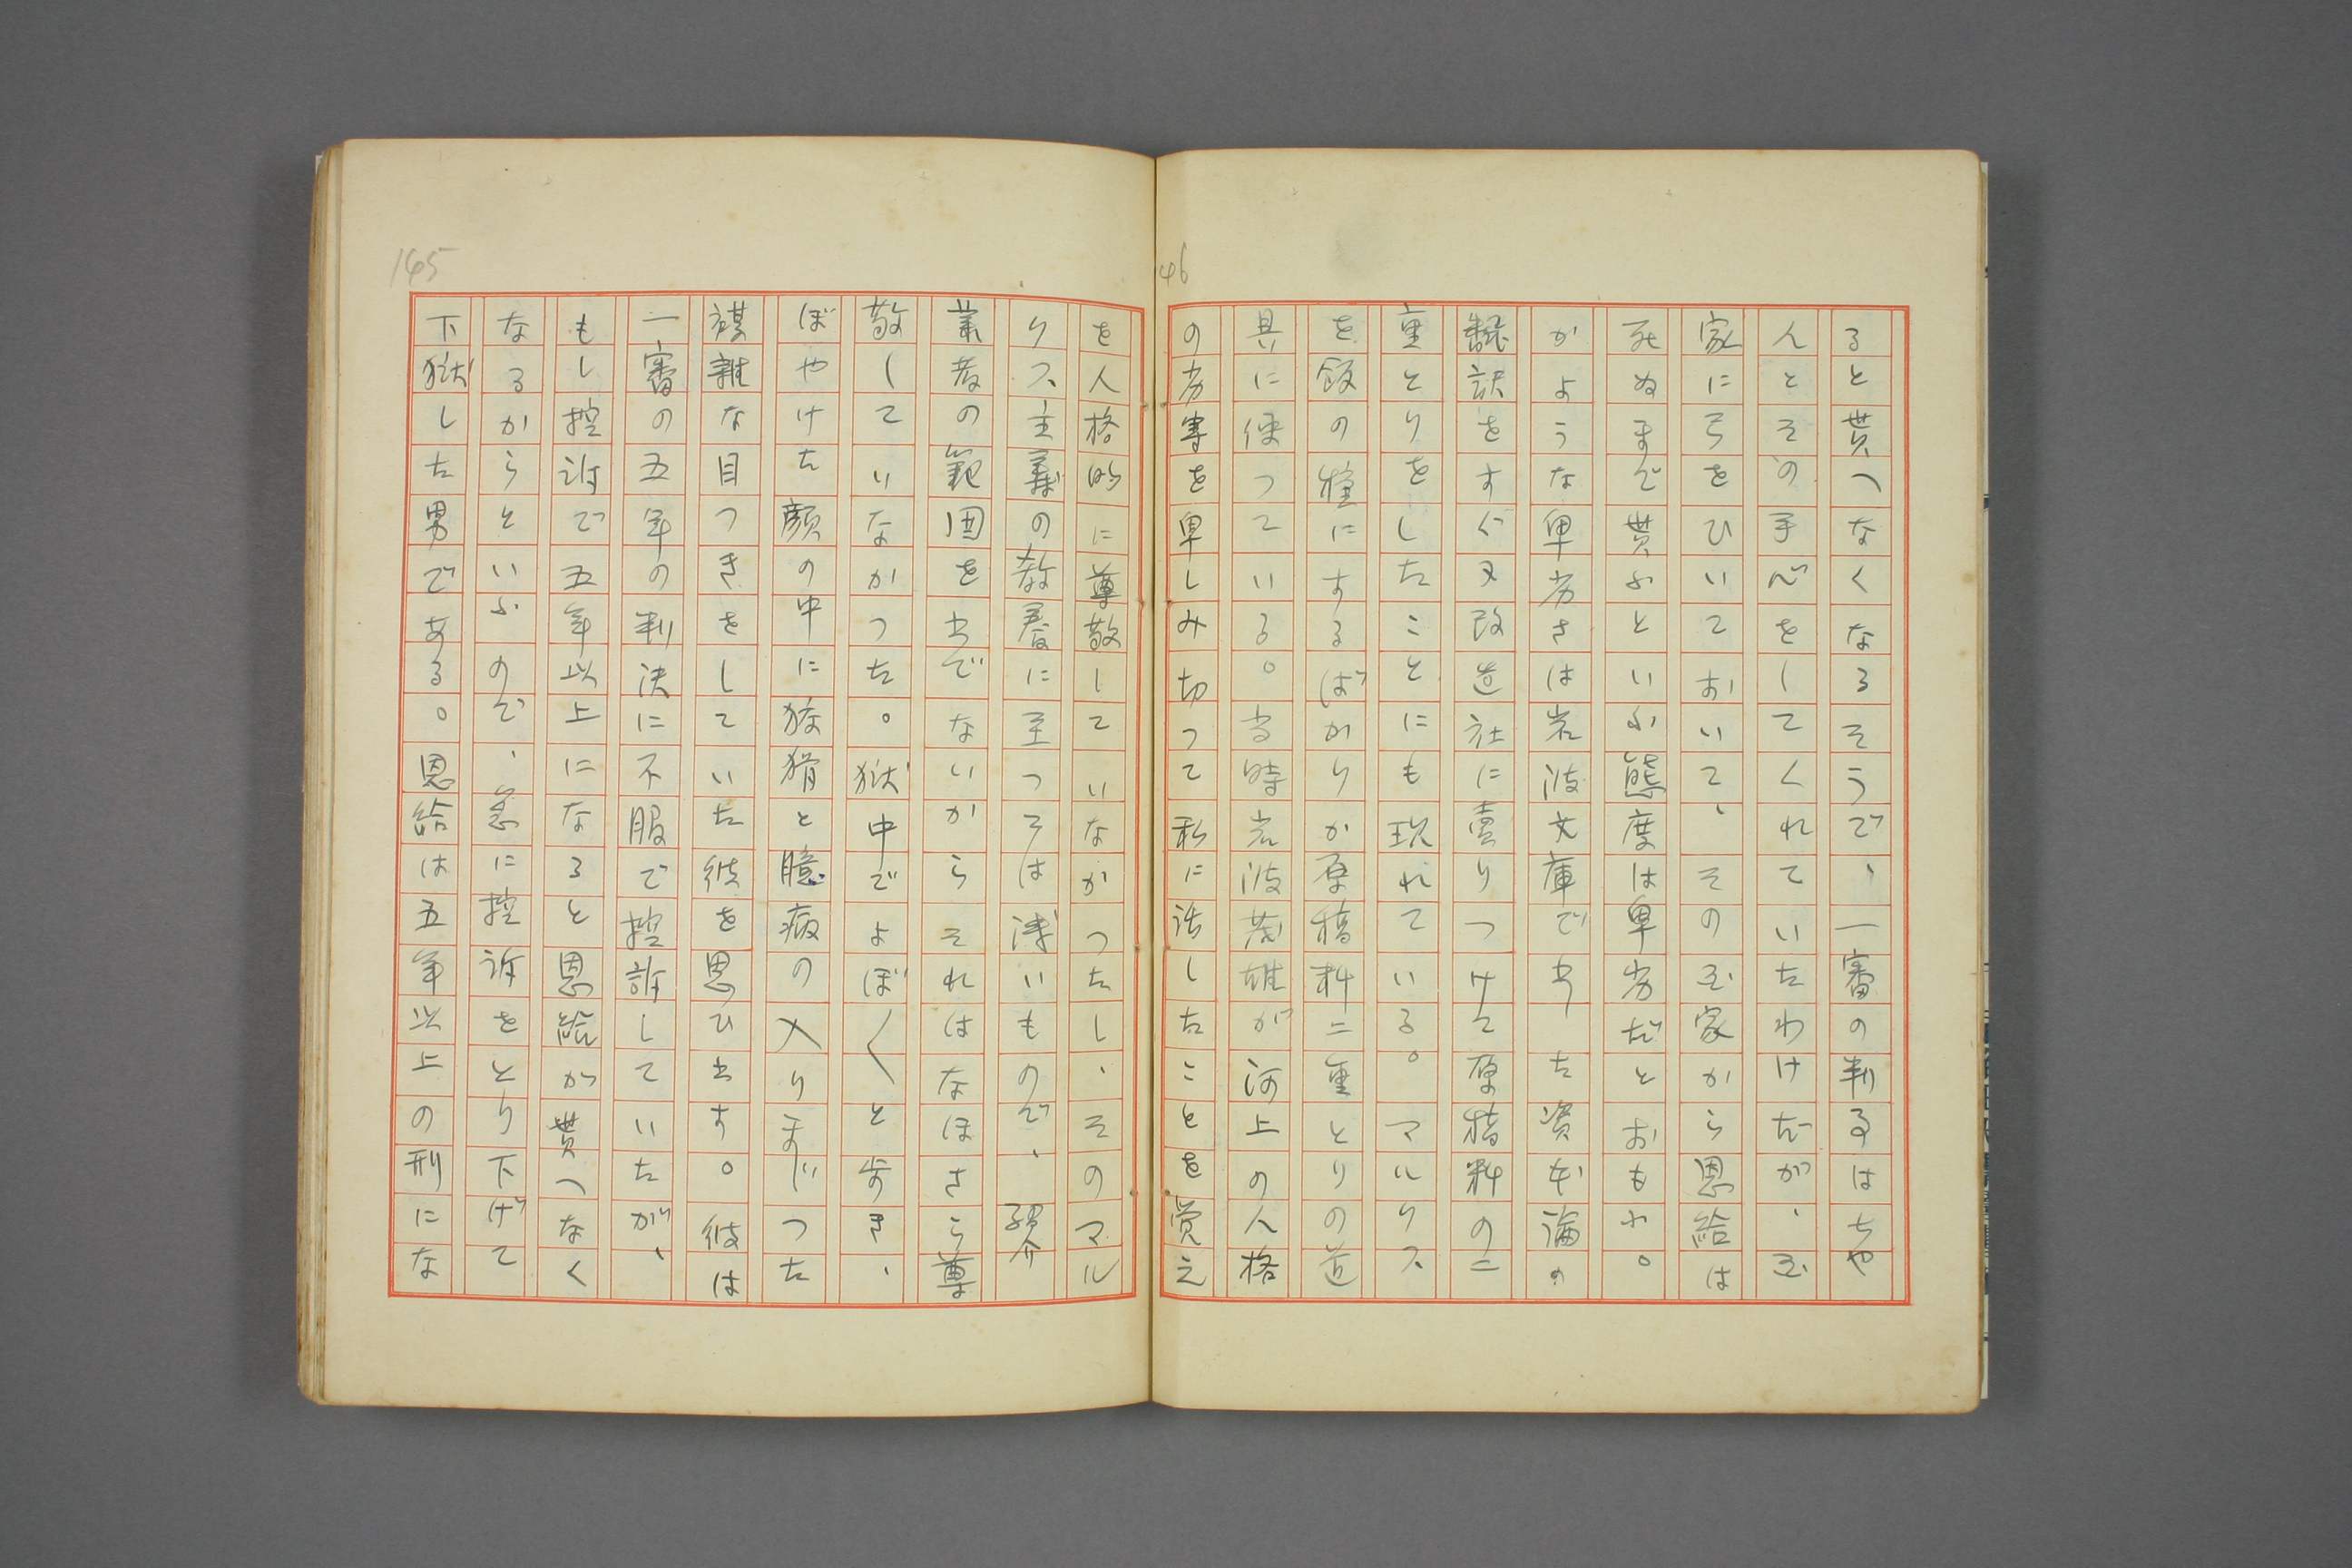 145
を人格的に尊敬していなかつたし、そのマル
クス主義の教養に至つては浅いもので、紹介
業者の範囲を出でないからそれはなほさら尊
敬していなかつた。獄中でよぼ〱と歩き、
ぼやけた顔の中に狡猾と臆病の入りまじつた
複雑な目つきをしていた彼を思ひ出す。彼は
一審の五年の判決に不服で控訴していたが、
もし控訴で五年以上になると恩給が貰へなく
なるからといふので、急に控訴をとり下げて
下獄した男である。恩給は五年以上の刑にな
46
ると貰へなくなるそうで、一審の判事はちや
んとその手心をしてくれていたわけだが、国
家に弓をひいておいて、その国家から恩給は
死ぬまで貰ふといふ態度は卑劣だとおもふ。
かような卑劣さは岩波文庫で出した資本論の
飜訳をすぐ又改造社に売りつけて原稿料の二
重とりをしたことにも現れている。マルクス
を飯の種にするばかりか原稿料二重とりの道
具に使つている。当時岩波茂雄が河上の人格
の劣等を卑しみ切つて私に話したことを覚え